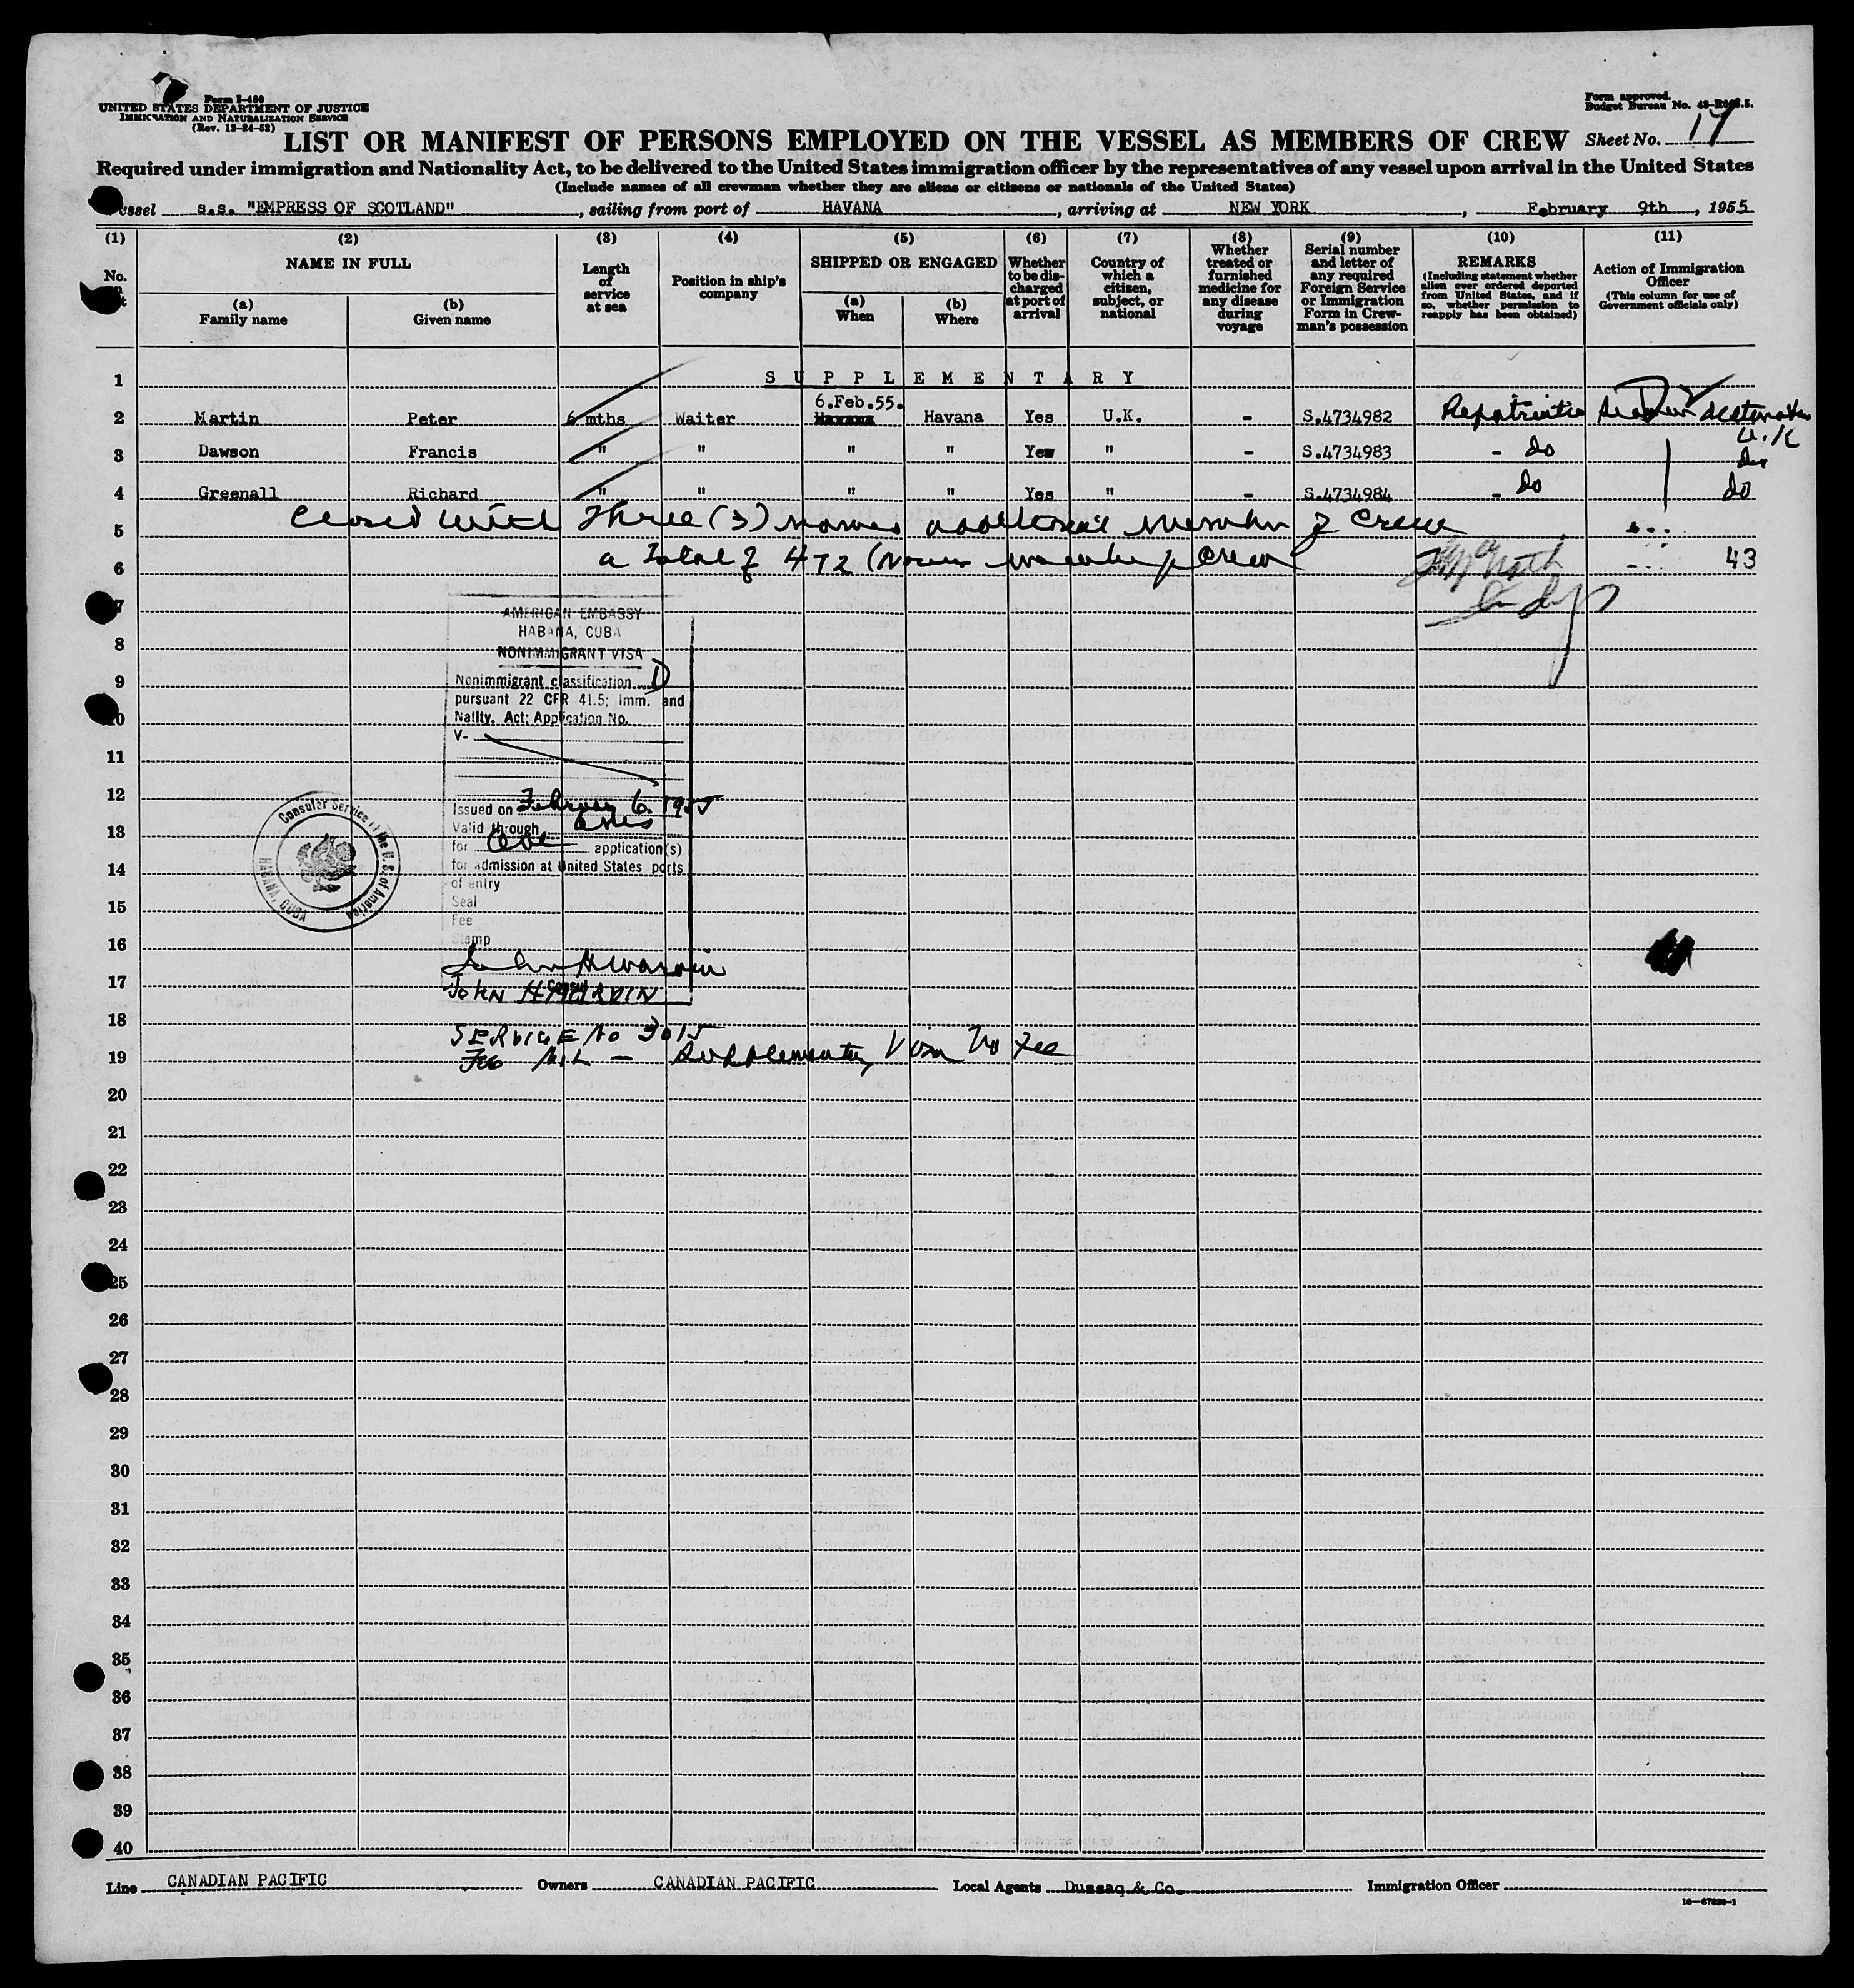 Form I-480
UNITED STATES DEPARTMENT OF JUSTICE
IMMIGRATION AND NATURALIZATION SERVICE
(Rev. 12-24-52)
Form approved.
Budget Bureau No. 43-
LIST OR MANIFEST OF PERSONS EMPLOYED ON THE VESSEL AS MEMBERS OF CREW
Sheet No. 17
Required under immigration and Nationality Act, to be delivered to the United States immigration officer by the representatives of any vessel upon arrival in the United States
(Include names of all crewman whether they are aliens or citizens or nationals of the United States)
essel s.s. "EMPRESS OF SCOTLAND", sailing from port of HAVANA, arriving at NEW YORK, February 9th, 1955
(1) (2) (3) (4) (5) (6) (7) (8) (9) (10) (11)
No.
NAME IN FULL
(a) Family name
(b) Given name
Length of service at sea
Position in ship's company
SHIPPED OR ENGAGED
(a) When
(b) Where
Whether to be discharged at port of arrival
Country of which a citizen, subject, or national
Whether treated or furnished medicine for any disease during voyage
Serial number and letter of any required Foreign Service or Immigration Form in Crew-man's possession
REMARKS
(Including statement whether alien ever ordered deported from United States, and if so, whether permission to reapply has been obtained)
Action of Immigration Officer
(This column for use of Government officials only)
1 SUPPLEMENTARY
6.Feb.55.
2 Martin Peter 6 mths Waiter Havana Yes U.K. - S.4734982
U.K
3 Dawson Francis " " " " Yes " - S.4734983 - do
4 Greenall Richard " " " " Yes " - S.4734984 - do do
Closed with Three (3) names additional Member of Crew
5
a total of 472 Crew
6 43
7
AMERICAN EMBASSY
HABANA, CUBA
8
NONIMMIGRANT VISA
9
Nonimmigrant classification D
pursuant 22 CFR 41.5; Imm. and
10
Natlty. Act; Application No.
V-
11
12
Issued on February 6, 1955
Valid through
13
for One application(s)
14
for admission at United States ports
of entry
15
Seal
Fee
16
Stamp
17
Consul
JOHN
Consular Service of the U.S. of America
HABANA, CUBA
18
SERVICE No 3015
19 Fee NIL - Supplementary Visa No Fee
20
21
22
23
24
25
26
27
28
29
30
31
32
33
34
35
36
37
38
39
40
Line CANADIAN PACIFIC Owners CANADIAN PACIFIC Local Agents Dussaq & Co. Immigration Officer